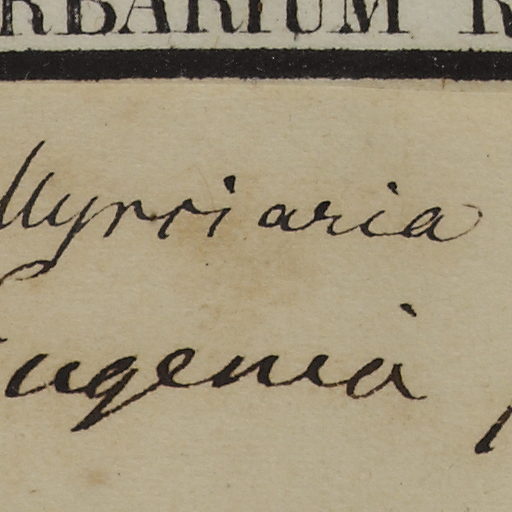 RBARIUM R
Myrciaria
Eugenia